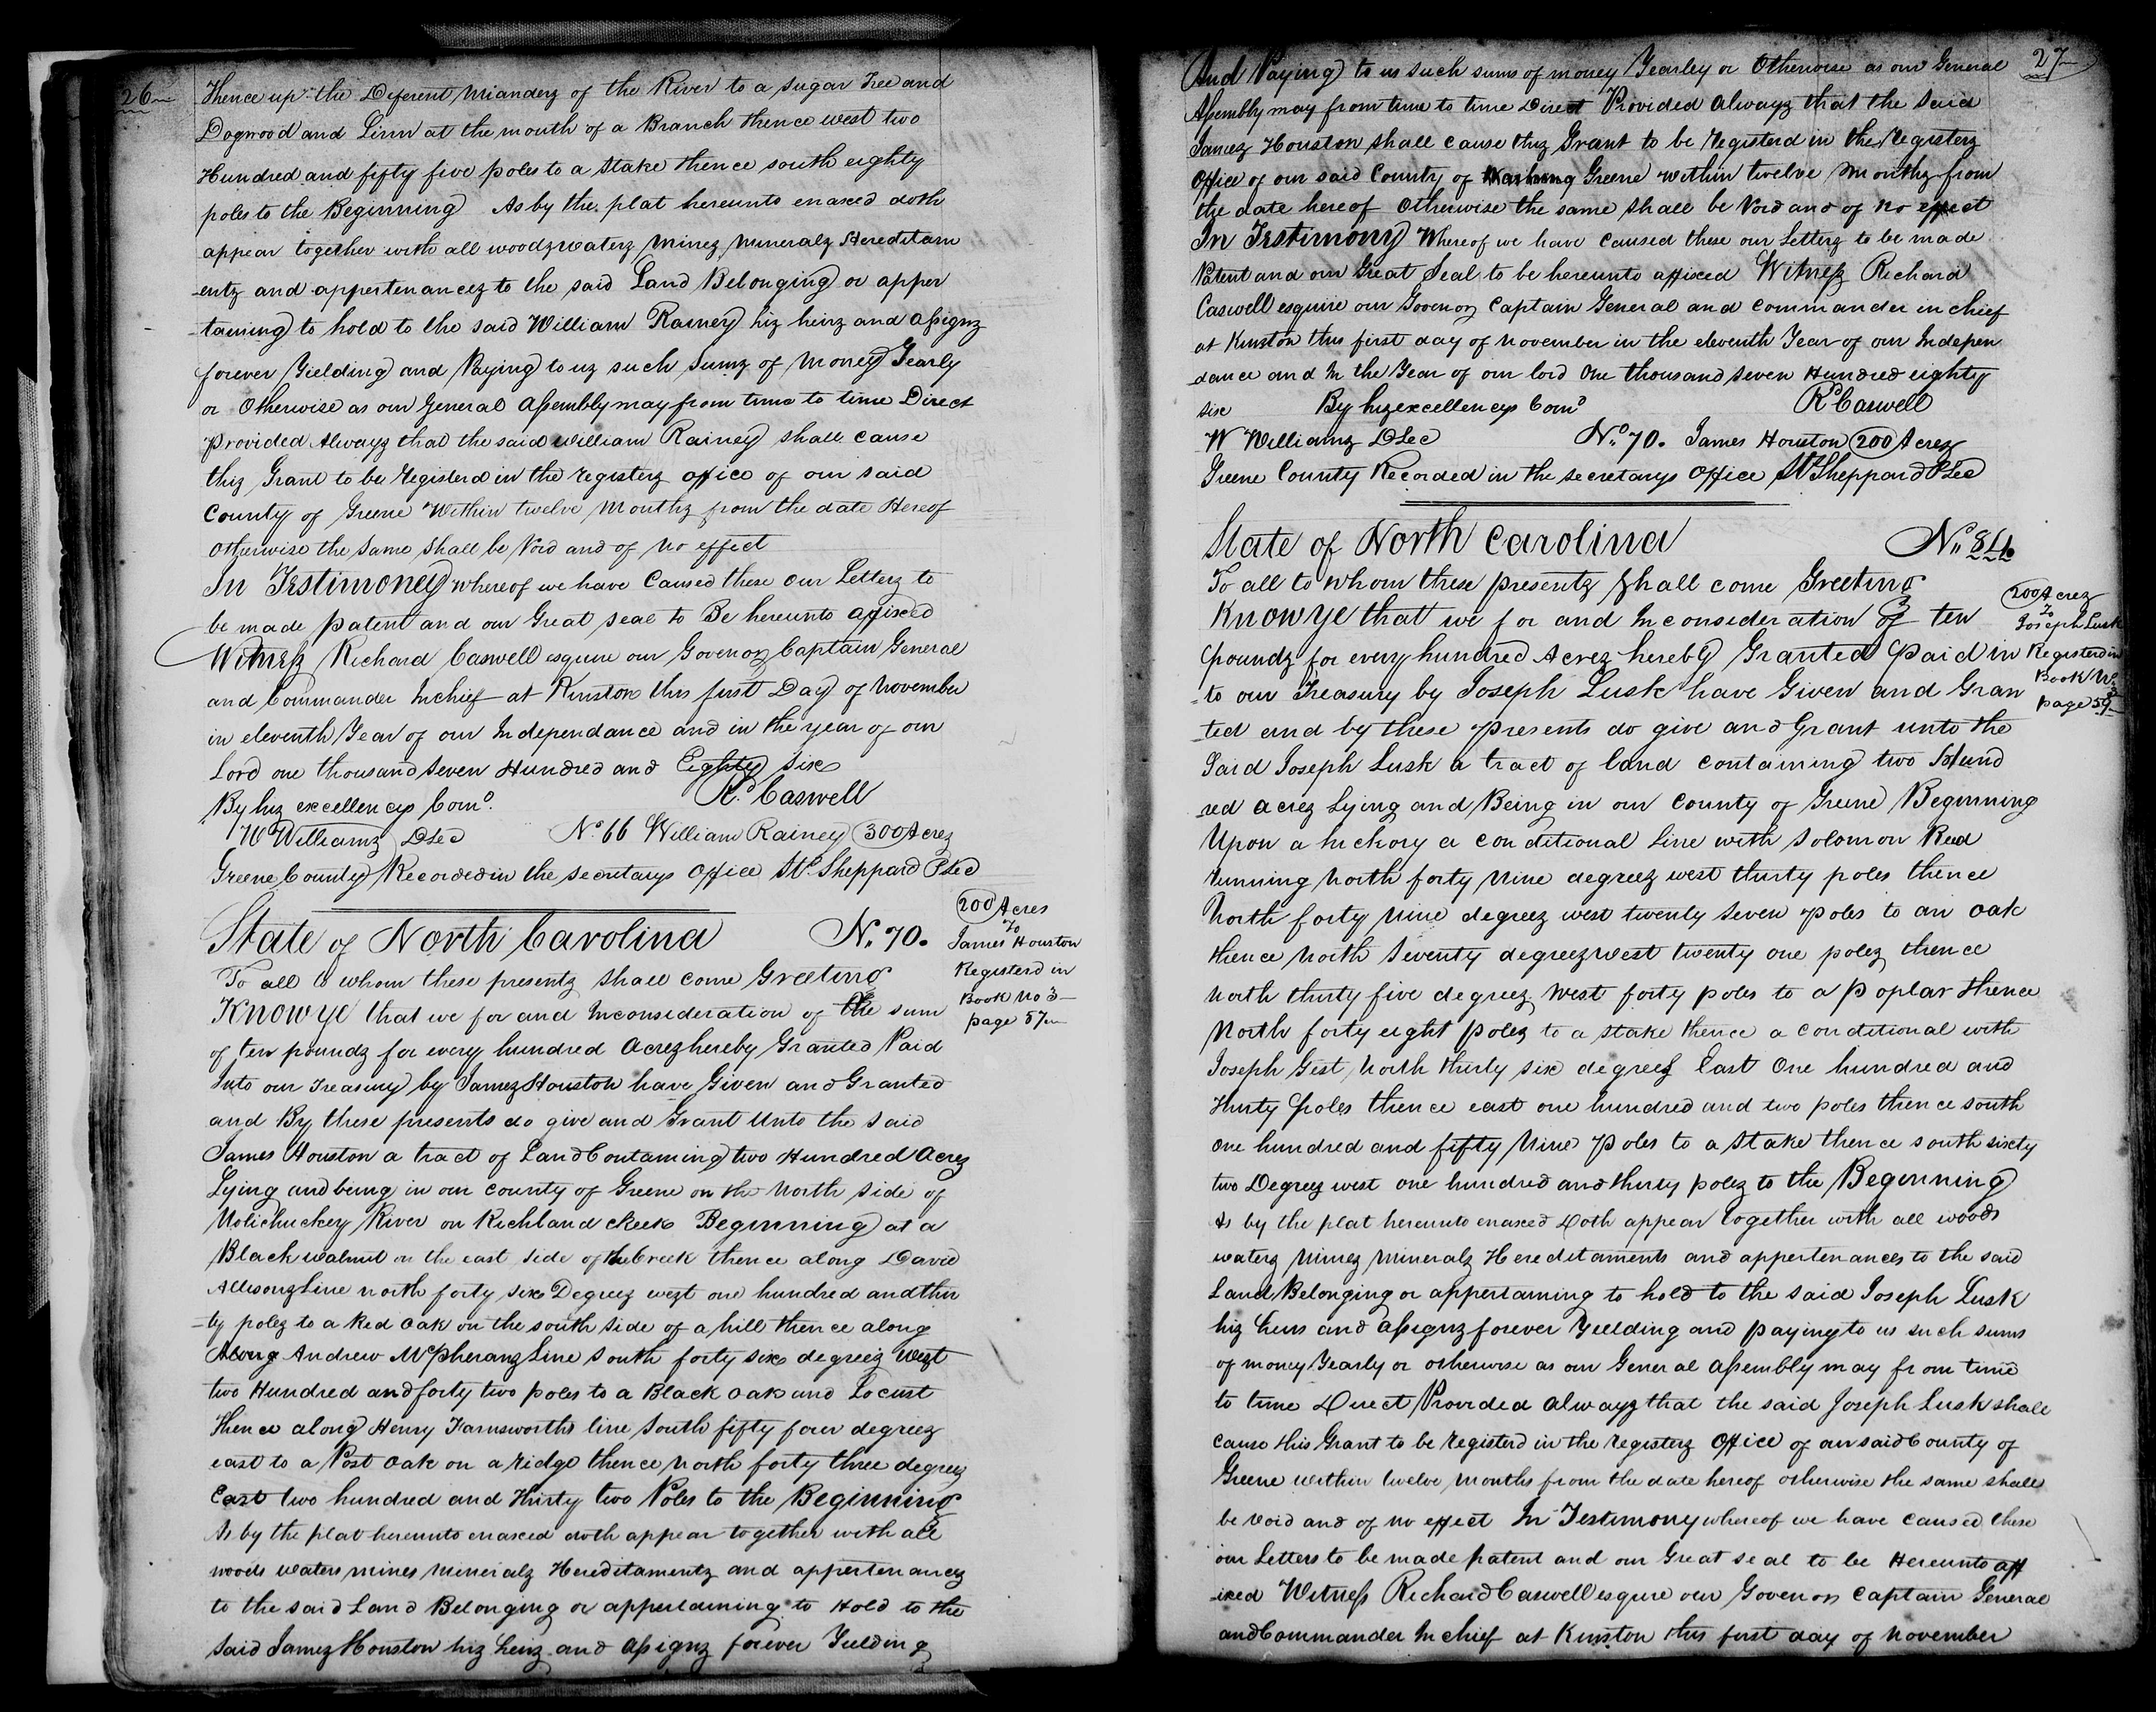 26
Thence up the Diferent Mianderz of the River to a sugar Tree and
Dogwood and Linn at the mouth of a Branch thence west two
Hundred and fifty five poles to a Stake thence south eighty
poles to the Beginning As by the plat hereunto enaxed doth
appear together with all woodz waterz Minez Mineralz Hereditam
-entz and appertenancez to the said Land Belonging or apper
-taining to hold to the said William Rainey hiz heirz and assignz
forever Yielding and Paying to uz such Sumz of Money Yearly
or Otherwise as our General Assembly may from time to time Direct
provided Alwayz that the said William Rainey shall cause
thiz Grant to be Registerd in the registerz office of our said
County of Greene Within twelve Monthz from the date Hereof
otherwise the same shall be Void and of no effect
In Testimoney whereof we have Caused these our Letterz to
be made patent and our Great seal to Be hereunto affixed
Witness Richard Caswell esquire our Govenor Captain General
and Commander Inchief at Kinston this first Day of November
in eleventh Year of our Independance and in the year of our
Lord one thousand Seven Hundred and Eighty Six
By hiz excellencys Comd. Rd. Caswell
W Williamz DSec No. 66 William Rainey 300 Acrez
Greene County Recorded in the secretarys office Wm. Sheppard PSec
State of North Carolina No. 70.
200 Acres
To
James Houston
Registerd in
Book No 3
page 57
To all to whom these presentz shall come Greeting
Know ye that we for and Inconsideration of the sum
of ten poundz for every hundred Acrez hereby Granted Paid
Into our Treasury by Jamez Houston have Given and Granted
and By these presents do give and Grant Unto the Said
James Houston a tract of Land Containing two Hundred Acrez
Lying and being in our county of Greene on the North side of
Nolichuckey River on Richland Creek Beginning at a
Black walnut on the east side of the Creek thence along David
Allisonz Line north forty six Degreez wezt one hundred and thir
-ty polez to a Red oak on the south side of a hill thence along
Along Andrew McPheranz Line South forty six degreez Wezt
two Hundred and forty two poles to a Black oak and Locust
thence along Henry Farnsworths line South fifty four degreez
east to a Post oak on a ridge thence North forty three degreez
East two hundred and Thirty two Poles to the Beginning
As by the plat hereunto enaxced doth appear together with all
woods waters mines Mineralz Hereditamentz and appertenancez
to the said Land Belonging or appertaining to Hold to the
said Jamez Houston hiz heirz and assignz forever Yielding
27
And Paying to us such sums of money Yearley or Otherwise as our General
Assembly may from time to time Direct Provided Always that the said
Jamez Houston shall cause thiz Grant to be Registerd in the Registerz
Office of our said County of Greene within twelve Monthz from
the date hereof Otherwise the same shall be Void and of no effect
In Testimony Whereof we have Caused these our Letterz to be made
Patent and our Great Seal to be hereunto affixed Witness Richard
Caswell esquire our Govenor Captain General and Commander in chief
at Kinston this first day of November in the eleventh Year of our Indepen
-dance and In the Year of our lord One thousand Seven Hundred eighty
six By hiz excellencys Comd Rd Caswell
W Williamz DSec No. 70. James Houston 200 Acrez
Greene County Recorded in the secretarys Office Wm Sheppard PSec
State of North Carolina No. 84
200 Acrez
To
Joseph Lusk
Registerd in
Book No 3
page 59
To all to whom these presentz shall come Greeting
Know ye that we for and In consideration of ten
poundz for every hundred Acrez hereby Granted Paid in
-to our Treasury by Joseph Lusk have Given and Gran
-ted and by these presents do give and Grant unto the
Said Joseph Lusk a tract of land containing two Hund
-red acrez Lying and Being in our County of Greene Beginning
Upon a hickory a conditional Line with Solomon Reed
Running North forty Nine degreez west thirty poles thence
North forty Nine degreez west twenty seven poles to an oak
thence North Seventy degreez west twenty one polez thence
North thirty five degreez West forty poles to a poplar thence
North forty eight polez to a stake thence a conditional with
Joseph Gest North thirty six degreez East One hundred and
Thirty poles thence east one hundred and two poles thence south
one hundred and fifty Nine poles to a Stake thence south sixty
two Degreez west one hundred and thirty polez to the Beginning
As by the plat hereunto enaxed Doth appear together with all woods
waterz Minez Mineralz Hereditaments and appertenances to the said
Land Belonging or appertaining to hold to the said Joseph Lusk
hiz heirs and assignz forever Yielding and paying to us such sums
of money Yearly or otherwise as our General Assembly may from time
to time Direct Provided alwayz that the said Joseph Lusk shall
cause this Grant to be Registerd in the Registerz Office of our said County of
Greene within twelve Months from the date hereof otherwise the same shall
be void and of no effect In Testimony whereof we have caused these
our Letters to be made patent and our Great seal to be Hereunto aff
-ixed Witness Richard Caswell esqure our Govenor Captain General
and Commander Inchief at Kinston this first day of November